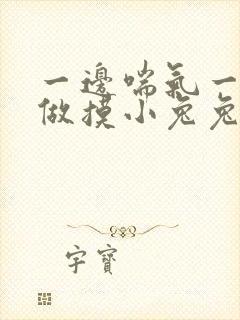 一邊喘氣一
做摸小兔兔
字寶